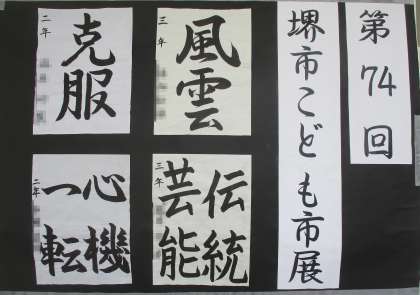 第74回
堺市こども市展
風雲
三年
克服
二年
伝統
芸能
三年
心機
一転
二年